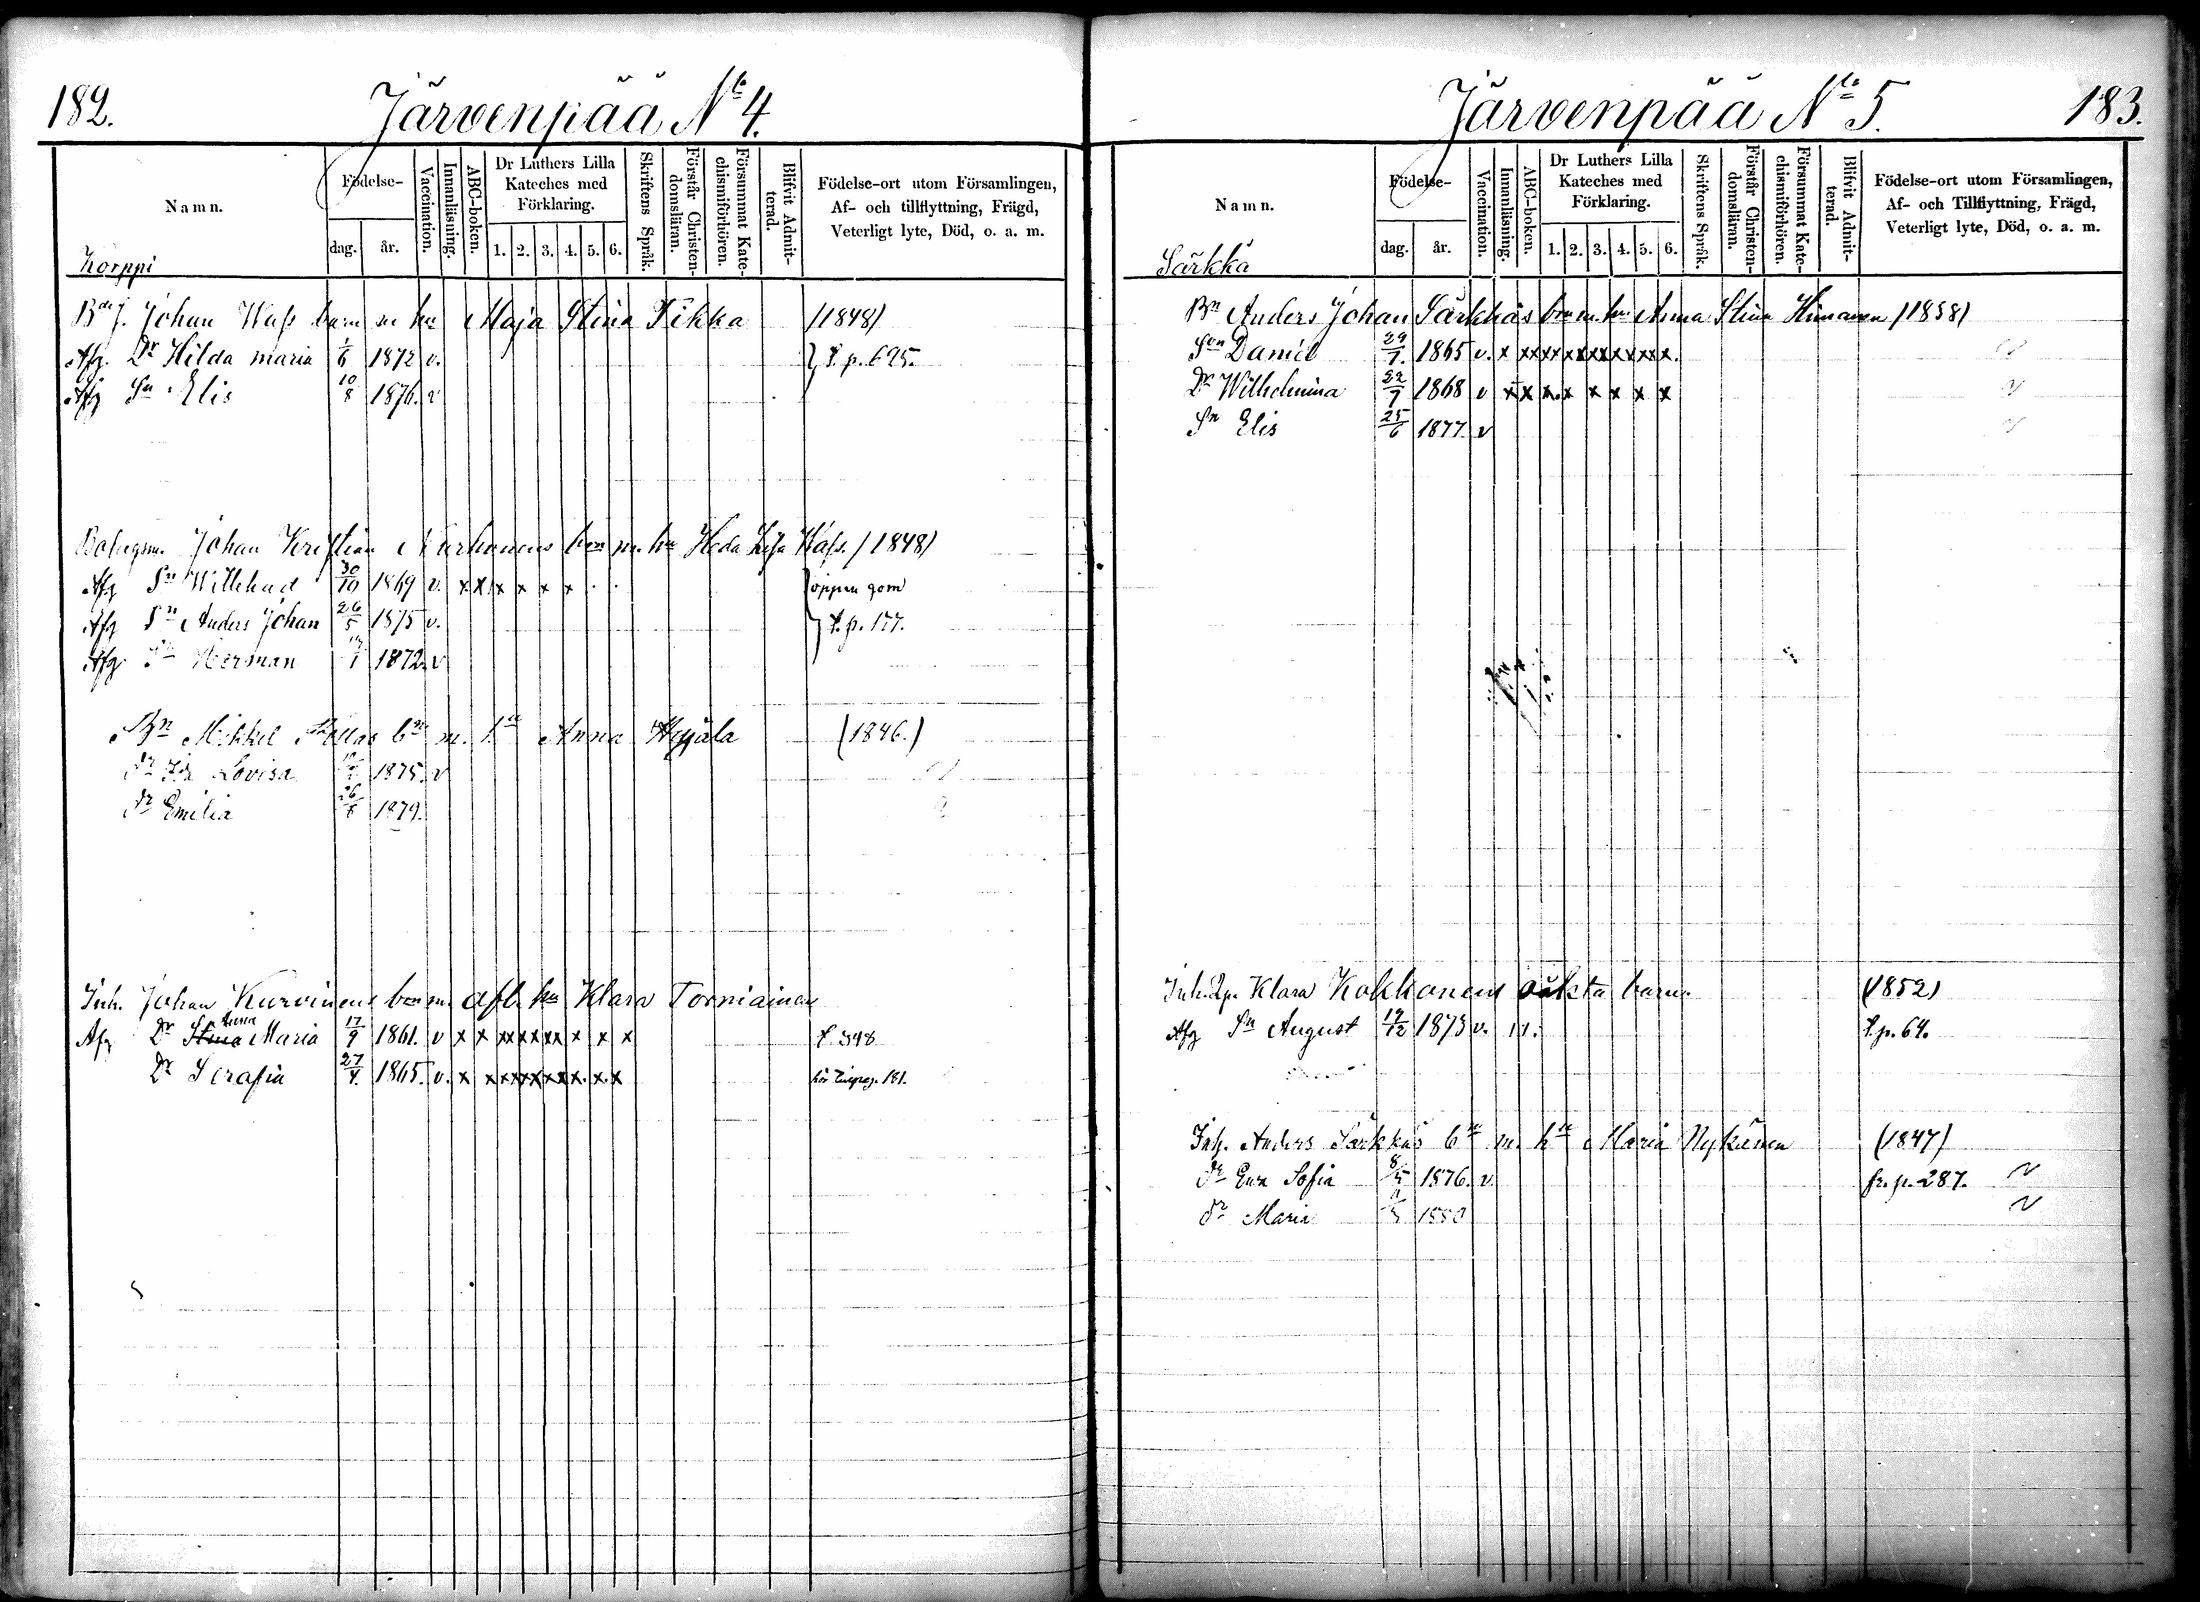 182.
Järvenpää No 4.
Namn.
Födelse-
dag.
år.
Vaccination.
Innanläsning.
ABC-boken.
Dr Luthers Lilla Kateches med Förklaring.
1. 2. 3. 4. 5. 6.
Skriftens Språk.
Förstår Christendomsläran.
Försummat Katechismiförhören.
Blifvit Admitterad.
Födelse-ort utom Församlingen, Af- och tillflyttning, Frägd, Veterligt lyte, Död, o. a. m.
Korppi
Johan Hafs barn m hu Maja Stina Pikka (1848)
Afg. Dr Hilda Maria 1/6 1872 v. t. p. 695.
Afg Sn Elis 10/8 1876. v
Johan Kristian Nurhonens brn m. hu Heda Lisa Hafs. (1848)
Afg Sn Willehad 30/10 1869 v. x x x x x x öppen gom
Afg Sn Anders Johan 26/5 1875 v. t. p. 177.
Afg Sn Herman 1872. v
Bn Mikkel bn m. hu Anna (1846.)
dr Ida Lovisa 1875. v
dr Emilia 26/8 1879.
Inh. Johan Kurvinens brn m. afl. hu Klara Torniainen
Afg Dr Stina Anna Maria 17/9 1861. v x x xx xx xx x x x t. 348
Dr Serafia 27/4. 1865. v. x x x x x x x x. x. x 181.
Järvenpää No 5.
183.
Namn.
Födelse-
dag.
år.
Vaccination.
Innanläsning.
ABC-boken.
Dr Luthers Lilla Kateches med Förklaring.
1. 2. 3. 4. 5. 6.
Skriftens Språk.
Förstår Christendomsläran.
Försummat Katechismiförhören.
Blifvit Admitterad.
Födelse-ort utom Församlingen, Af- och Tillflyttning, Frägd, Veterligt lyte, Död, o. a. m.
Särkkä
Bn Anders Johan Särkkäs brn m. hu Anna Stina Himanen (1858)
Son Daniel 29/7. 1865 v. x xx xx xx xx xx xx x.
Dr Wilhelmina 22/7 1868 v x x x x x x x x
Sn Elis 25/6 1877. v
Inh. Klara Kokkonens oäkta barn. (1852)
Afg Sn August 19/12 1873 v. t. p. 64.
Inh. Anders Särkkäs bn m. hu Maria Nykänen (1847)
dr Eva Sofia 8/5 1876. v. fr. p. 287.
dr Maria 1880